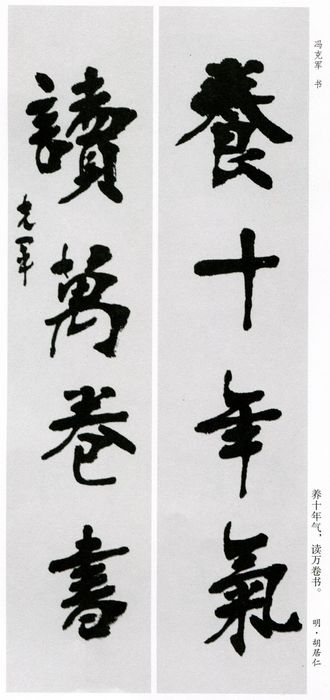 冯克军 书
養十年氣
讀萬卷書
克军
养十年气，读万卷书。
明·胡居仁